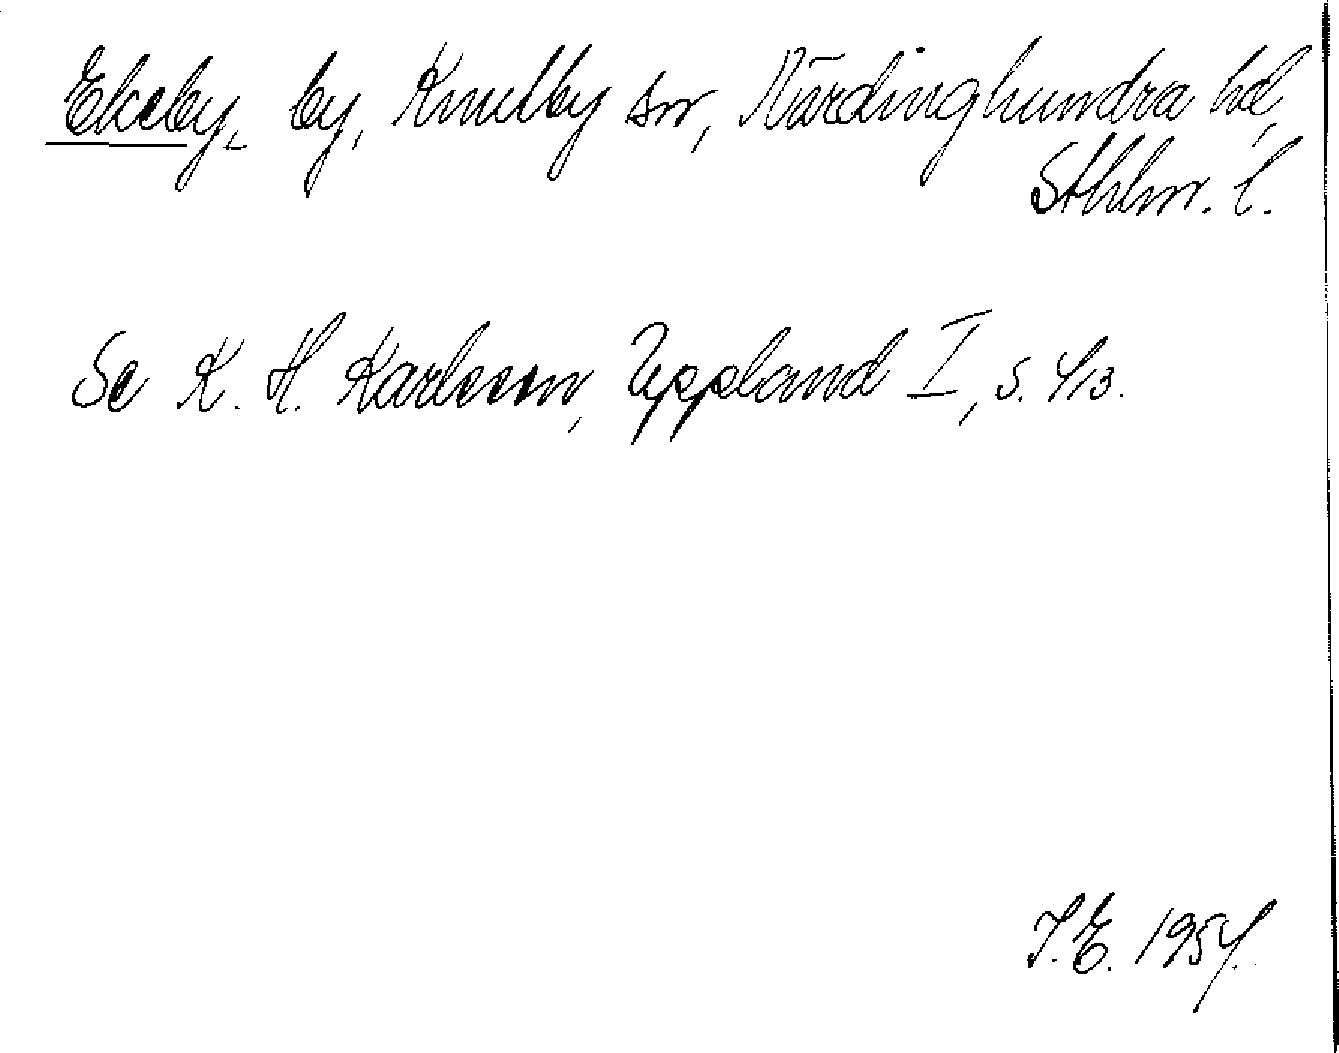 Ekeby, by, Knutby sn, Närdinghundra hd,
Sthlm. l.
Se K. H. Karlsson, Uppland I, s. 413.
I. E. 1954.